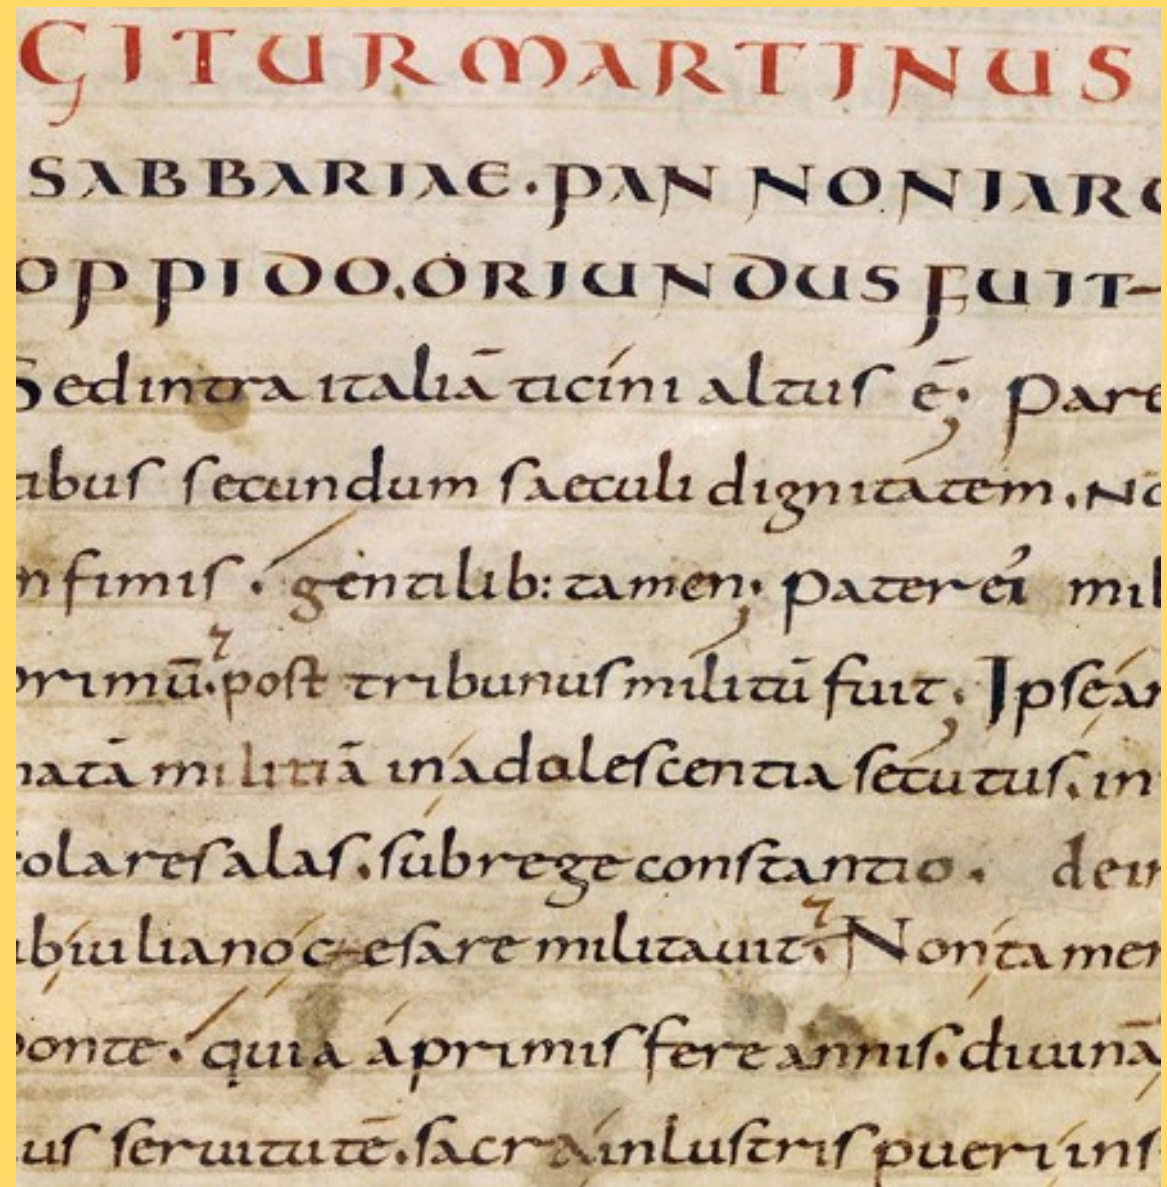 GITUR MARTINUS
SABBARIAE. PANNONIARO
OPPIDO. ORIUNDUS FUIT
Sed intra italiā ticini altus ē; Pare
tibus secundum saeculi dignitatem. No
nfimis. gentilib: tamen; Pater ei mil
primū. post tribunus militū fuit; Ipse ar
matā militiā in adolescentia secutus. in
colares alas. sub rege constantio. dein
ub iuliano cęsare militauit. Non tamen
ponte. quia a primis fere annis. diuinā
us seruitutē. sacra inlustris pueri ins